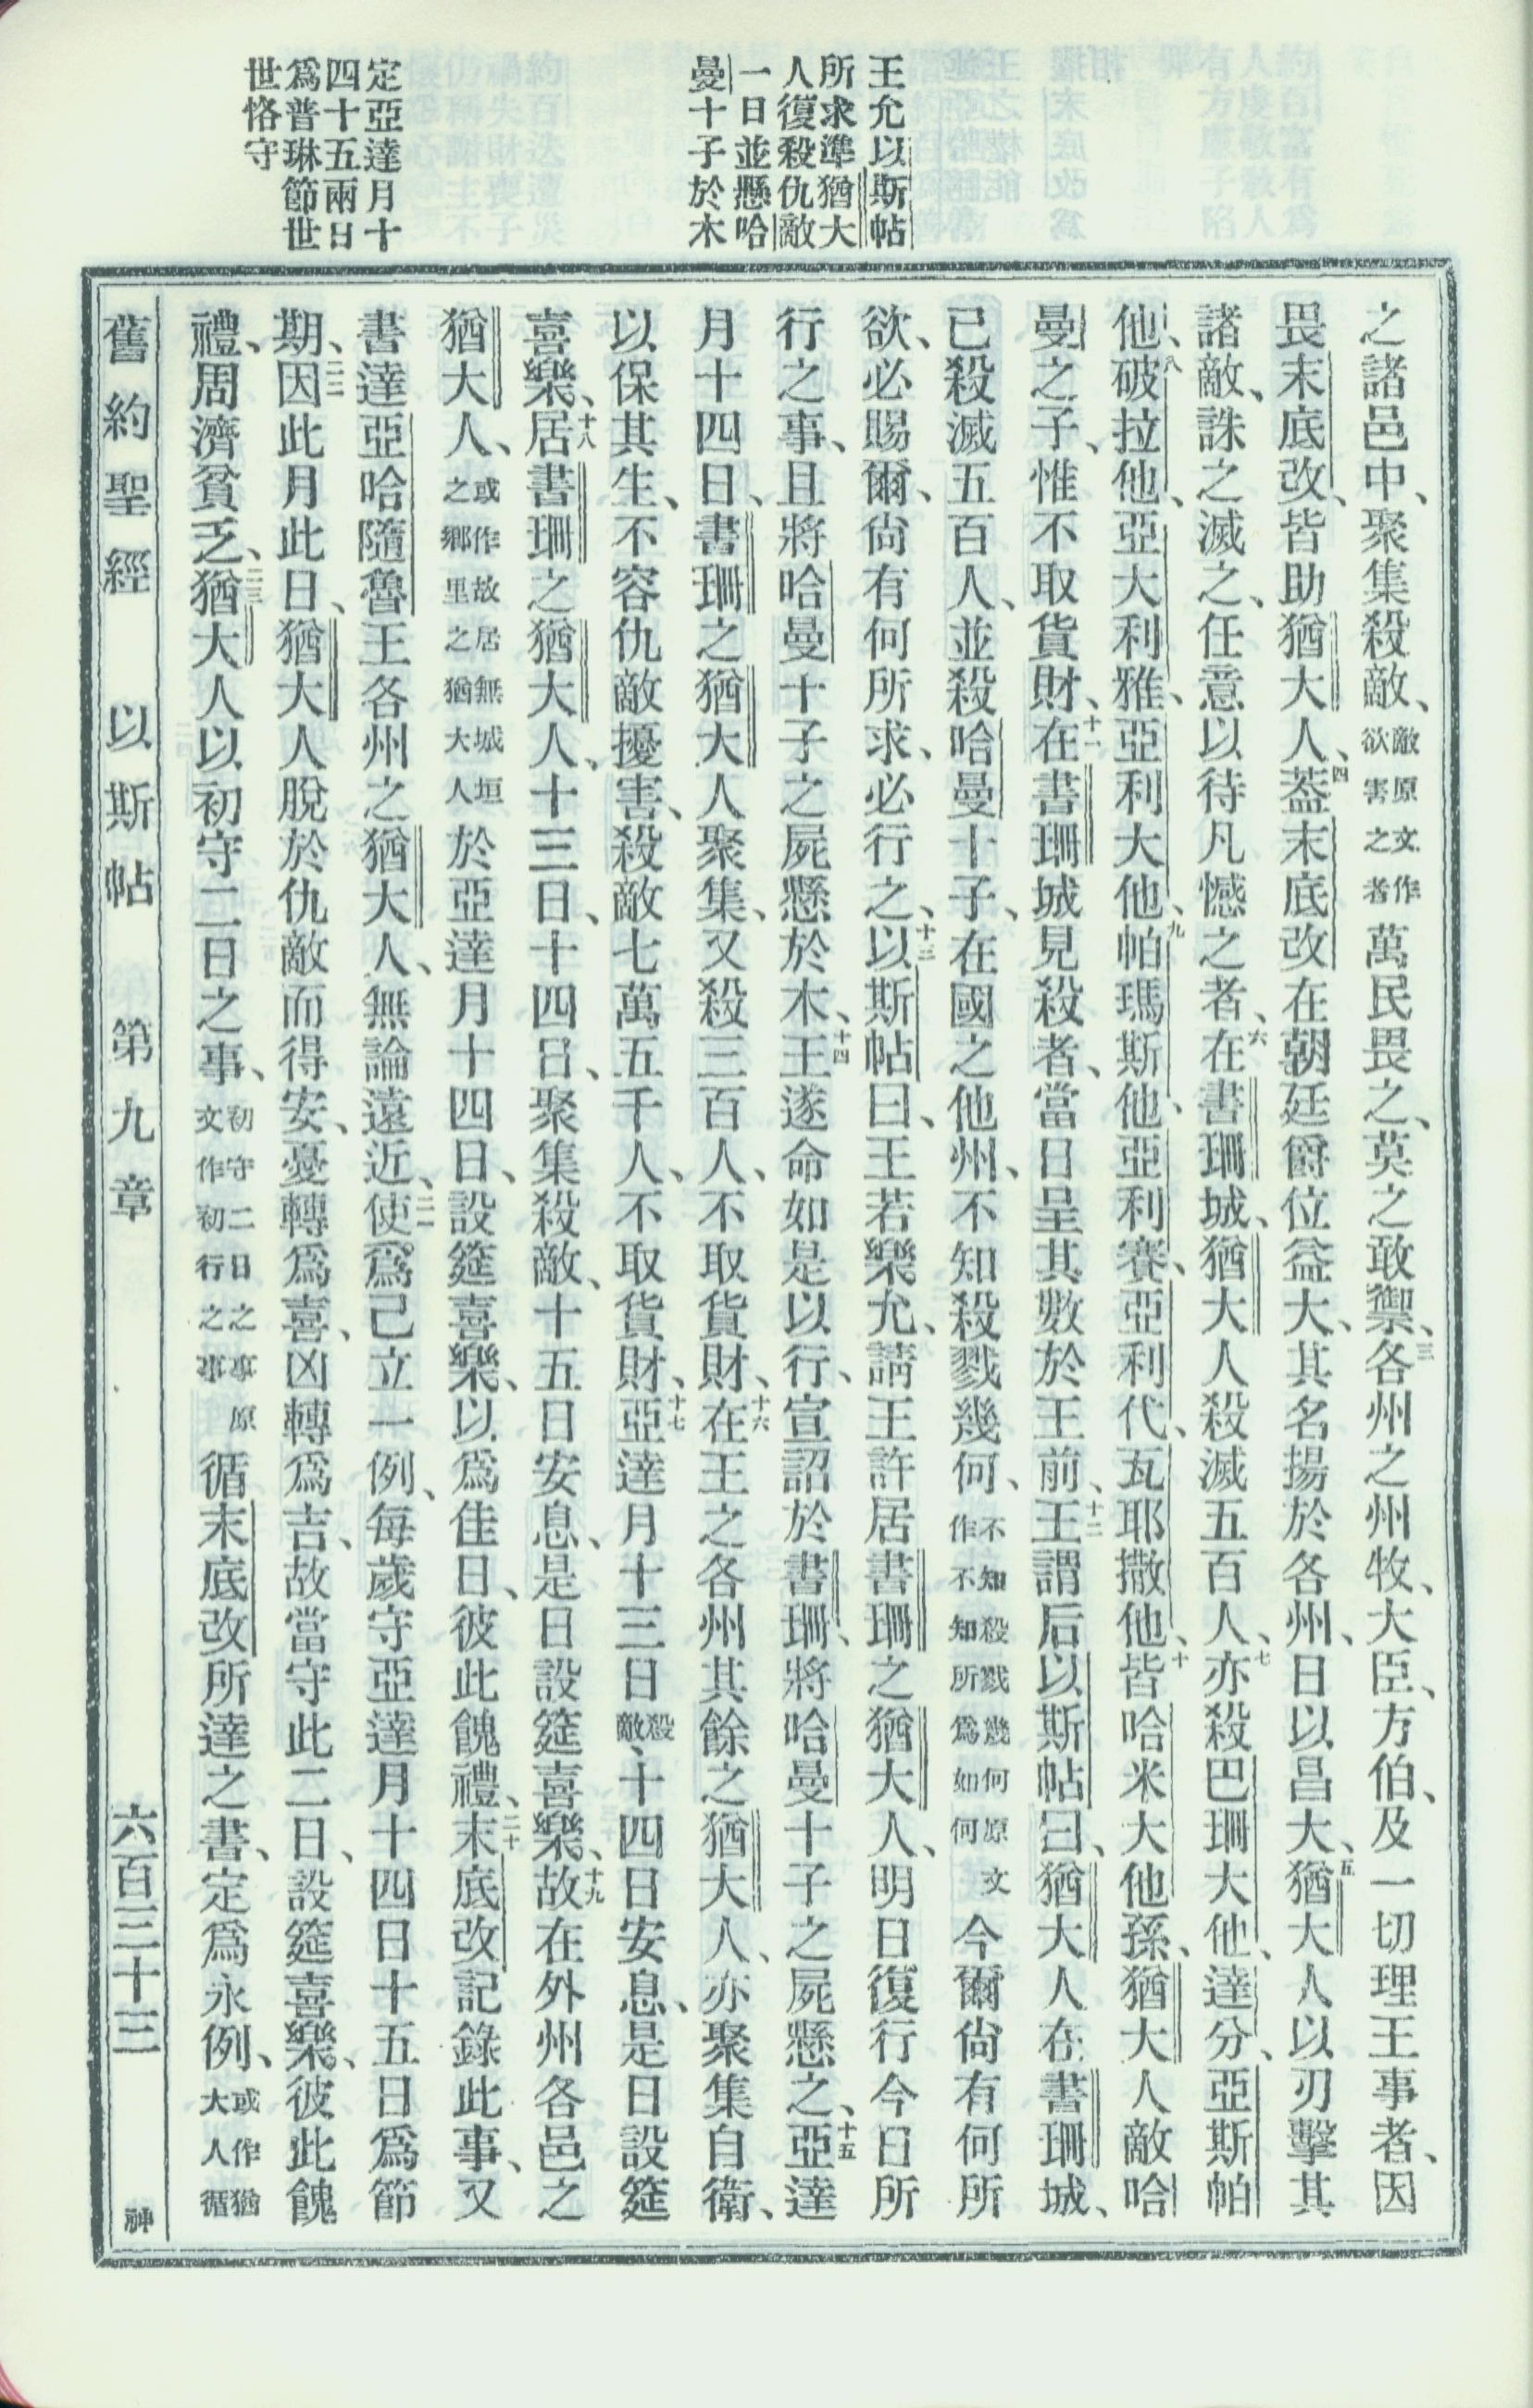 王允以斯帖
所求準猶大
人復殺仇敵
一日並懸哈
曼十子於木
定亞達月十
四十五兩日
爲普琳節世
世恪守
之諸邑中、聚集殺敵、敵原文作欲害之者萬民畏之、莫之敢禦、三各州之州牧、大臣、方伯、及一切理王事者、因
畏末底改、皆助猶大人、四蓋末底改在朝廷爵位益大、其名揚於各州、日以昌大、五猶大人以刃擊其
諸敵、誅之滅之、任意以待凡憾之者、六在書珊城、猶大人殺滅五百人、七亦殺巴珊大他、達分、亞斯帕
他、八破拉他、亞大利雅、亞利大他、九帕瑪斯他、亞利賽、亞利代、瓦耶撒他、十皆哈米大他孫、猶大人敵哈
曼之子、惟不取貨財、十一在書珊城見殺者、當日呈其數於王前、十二王謂后以斯帖曰、猶大人在書珊城、
已殺滅五百人、並殺哈曼十子、在國之他州、不知殺戮幾何、不知殺戮幾何原文作不知所爲如何今爾尙有何所
欲、必賜爾、尙有何所求、必行之、十三以斯帖曰、王若樂允、請王許居書珊之猶大人、明日復行今日所
行之事、且將哈曼十子之屍懸於木、十四王遂命如是以行、宣詔於書珊、將哈曼十子之屍懸之、十五亞達
月十四日、書珊之猶大人聚集、又殺三百人、不取貨財、十六在王之各州其餘之猶大人、亦聚集自衛、
以保其生、不容仇敵擾害、殺敵七萬五千人、不取貨財、十七亞達月十三日殺敵、十四日安息、是日設筵
喜樂、十八居書珊之猶大人、十三日、十四日、聚集殺敵、十五日安息、是日設筵喜樂、十九故在外州各邑之
猶大人、或作故居無城垣之鄉里之猶大人於亞達月十四日、設筵喜樂、以爲佳日、彼此餽禮、二十末底改記錄此事、又
書達亞哈隨魯王各州之猶大人、無論遠近、二一使爲己立一例、每歲守亞達月十四日十五日爲節
期、二二因此月此日、猶大人脫於仇敵而得安、憂轉爲喜、凶轉爲吉、故當守此二日、設筵喜樂、彼此餽
禮、周濟貧乏、二三猶大人以初守二日之事、初守二日之事原文作初行之事循末底改所達之書、定爲永例、或作猶大人循
舊約聖經　以斯帖　第九章　六百三十三　神